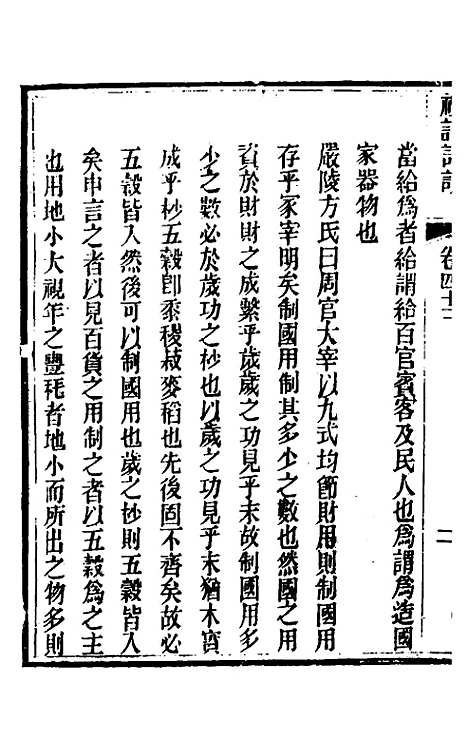 禮記集說
卷四十二
二
當給爲者給謂給百官賓客及民人也爲謂爲造國
家器物也
嚴陵方氏曰周官大宰以九式均節財用則制國用
存乎冢宰明矣制國用制其多少之數也然國之用
資於財財之成繫乎歲歲之功見乎末故制國用多
少之數必於歲功之杪也以歲之功見乎末猶木實
成乎杪五穀卽黍稷菽麥稻也先後固不齊矣故必
五穀皆入然後可以制國用也歲之杪則五穀皆入
矣申言之者以見百貨之用制之者以五穀爲之主
也用地小大視年之豐耗者地小而所出之物多則